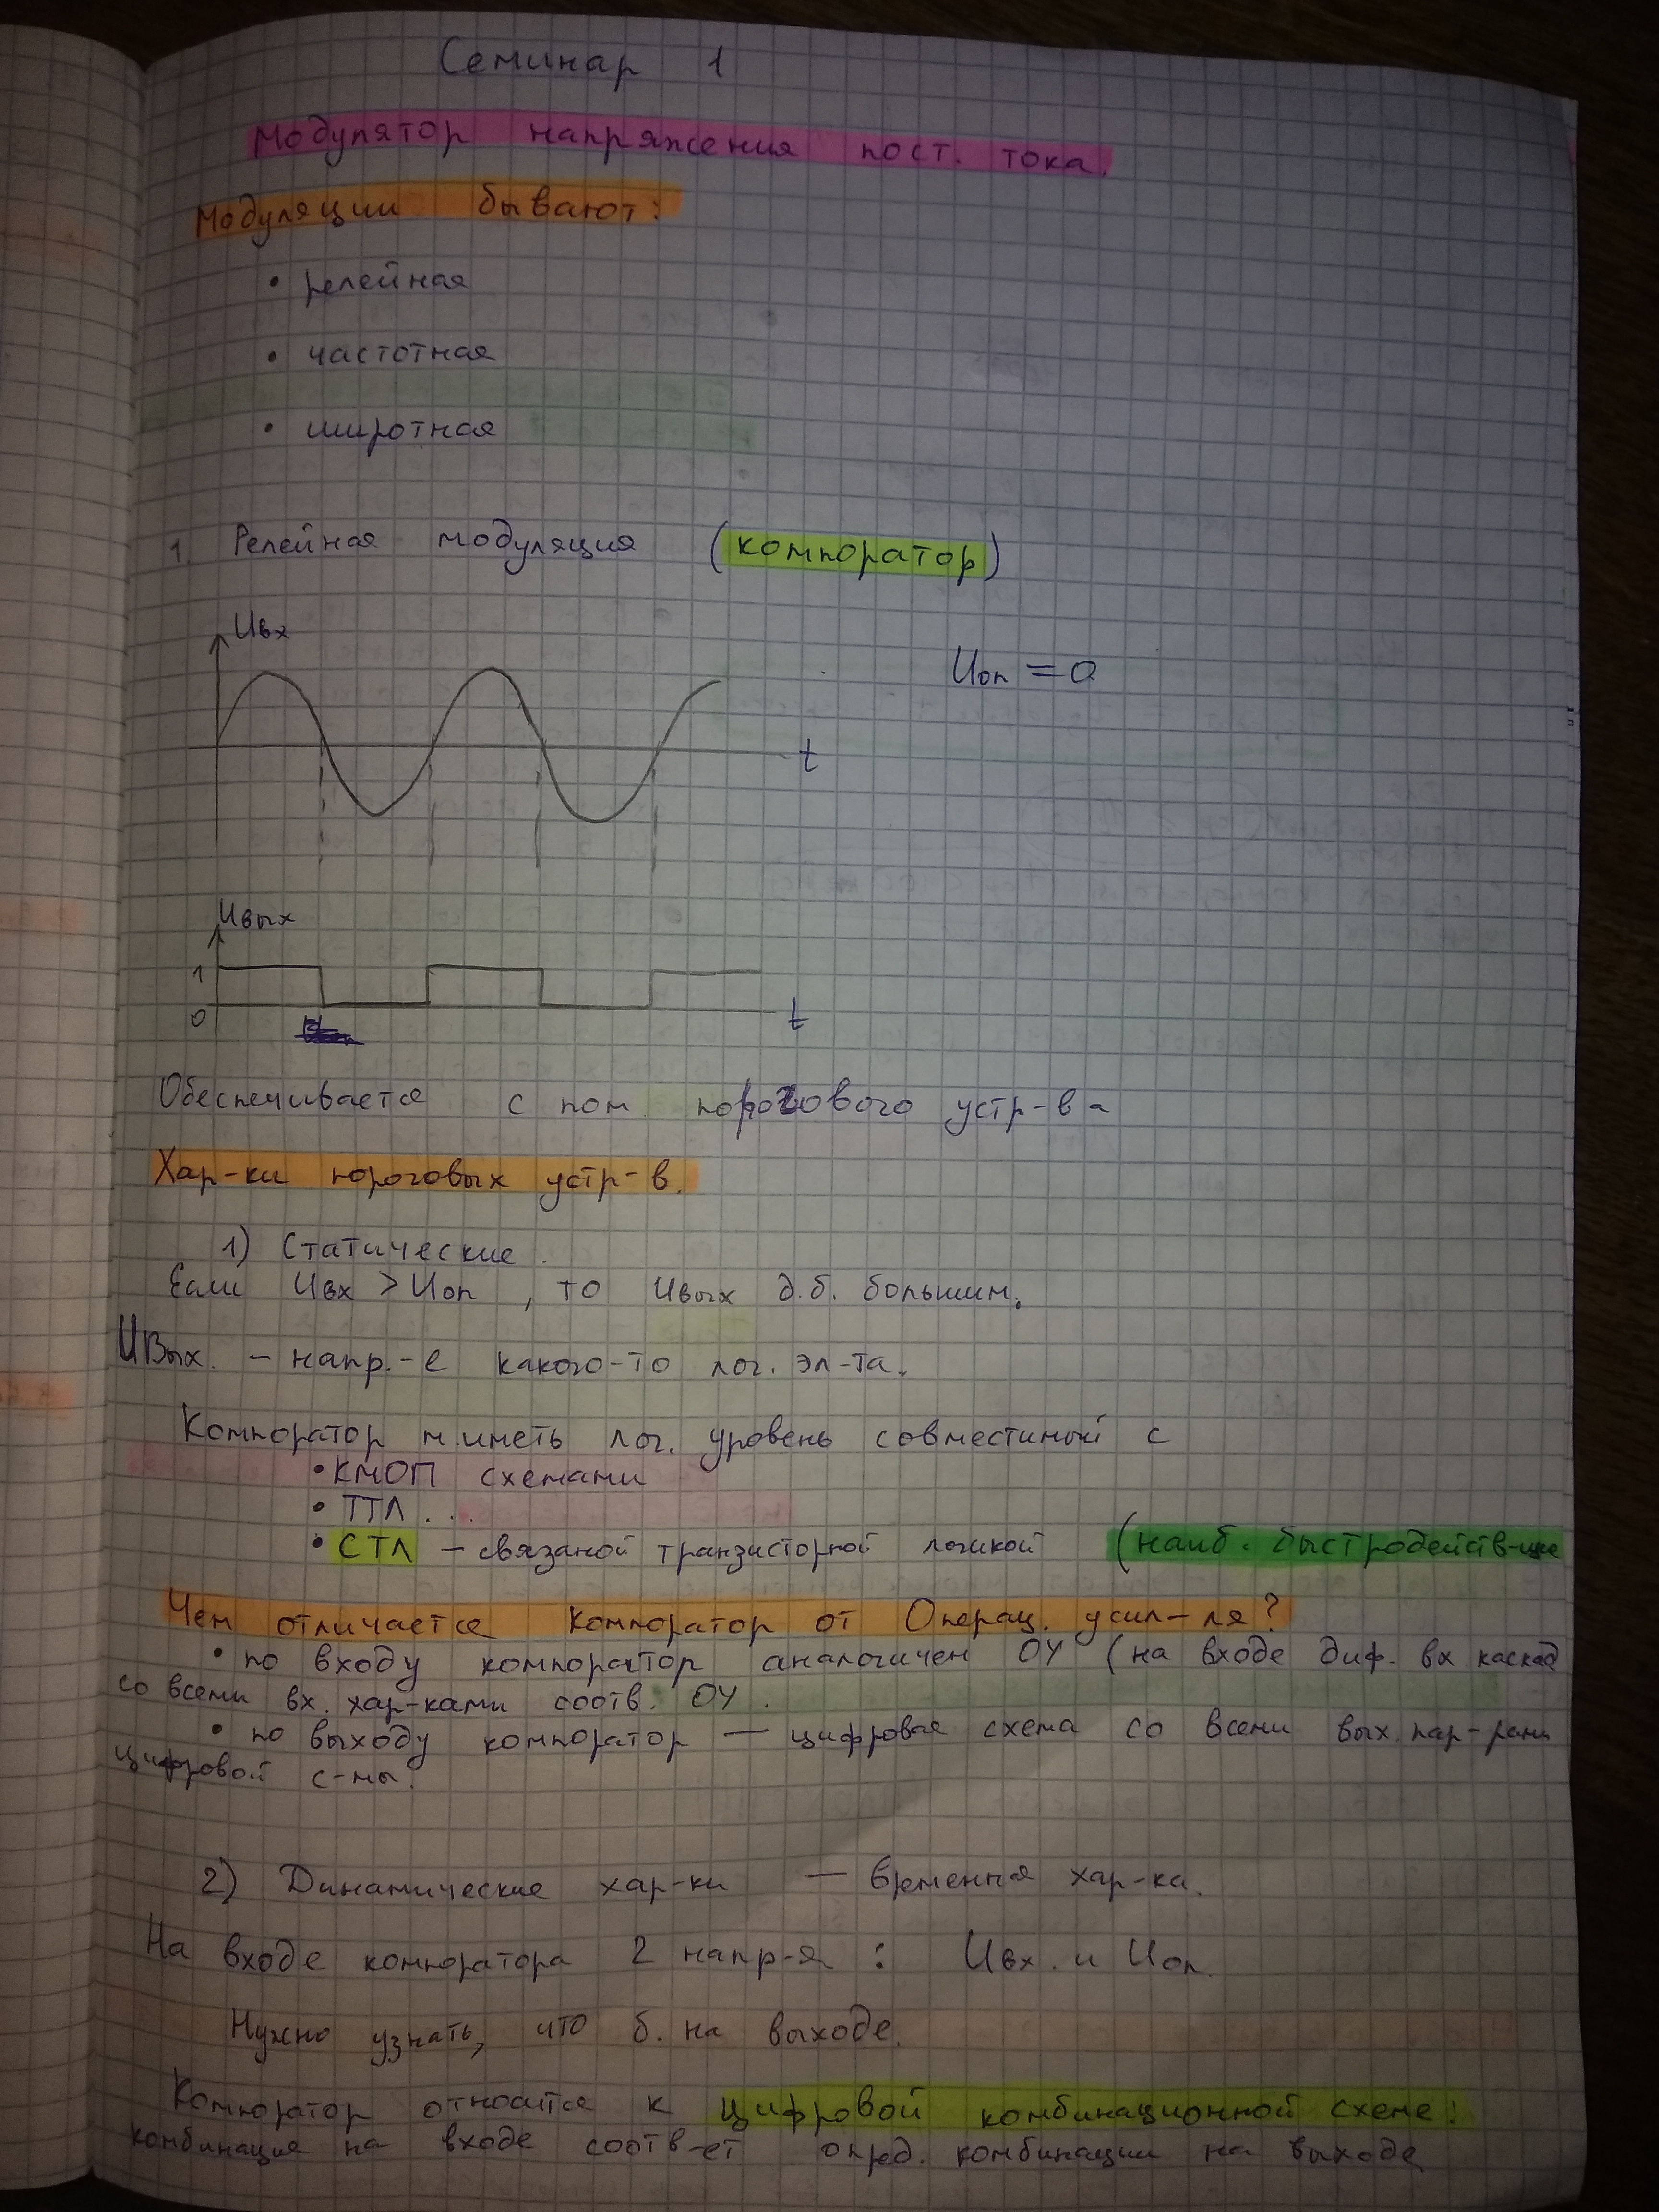 Семинар 1
Модулятор напряжения пост. тока.
Модуляции бывают:
• релейная
• частотная
• широтная
1. Релейная модуляция (компоратор)
Uвх
Uоп = 0
t
Uвых
1
0
t
Обеспечивается с пом. порогового устр-ва
Хар-ки пороговых устр-в.
1) Статические.
Если Uвх > Uоп, то Uвых д.б. большим.
Uвых. – напр.-е какого-то лог. эл-та.
Компоратор м.иметь лог. уровень совместимый с
• КМОП схемами
• ТТЛ ...
• СТЛ – связаной транзисторной логикой (наиб. быстродейств-щие
Чем отличается компоратор от Операц. усил-ля?
• по входу компоратор аналогичен ОУ (на входе диф. вх каскад
со всеми вх. хар-ками соотв. ОУ.
• по выходу компоратор — цифровая схема со всеми вых. пар-рами
цифровой с-мы.
2) Динамические хар-ки — временная хар-ка.
На входе компоратора 2 напр-я : Uвх. и Uоп.
Нужно узнать, что б. на выходе.
Компоратор относится к цифровой комбинационной схеме:
комбинация на входе соотв-ет опред. комбинации на выходе